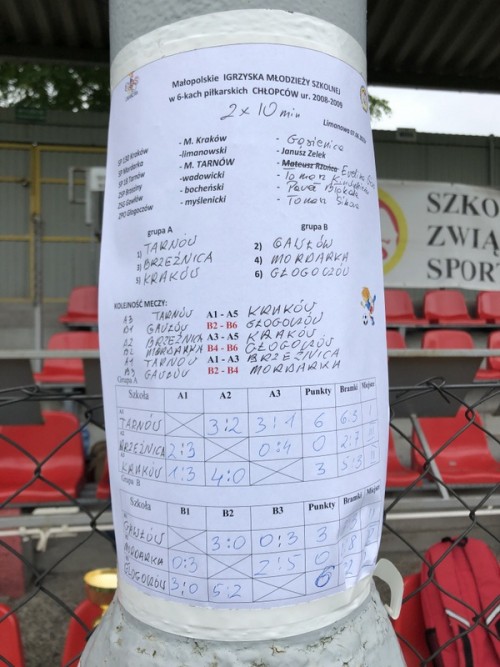 Małopolskie IGRZYSKA MŁODZIEŻY SZKOLNEJ
w 6-kach piłkarskich CHŁOPCÓW ur. 2008-2009
2 x 10 min
Limanowa
SP 130 Kraków - M. Kraków - Gąsienica
SP Mordarka -limanowski - Janusz Zelek
SP 18 Tarnów - M. TARNÓW - Mateusz
ZSP Brzeźnica -wadowicki - Tomasz
ZSG Gawłów -bocheński - Paweł
ZPO Głogoczów -myślenicki - Tomasz
grupa A grupa B
1) TARNÓW 2) GAWŁÓW
3) BRZEŹNICA 4) MORDARKA
5) KRAKÓW 6) GŁOGOCZÓW
KOLEJNOŚĆ MECZY:
TARNÓW A1 - A5 KRAKÓW
B1 GAWŁÓW B2 - B6 GŁOGOCZÓW
A2 BRZEŹNICA A3 - A5 KRAKÓW
B2 MORDARKA B4 - B6 GŁOGOCZÓW
A1 TARNÓW A1 - A3 BRZEŹNICA
B3 GAWŁÓW B2 - B4 MORDARKA
Grupa A
Szkoła A1 A2 A3 Punkty Bramki Miejsce
TARNÓW 3:2 3:1 6 6:3 I
BRZEŹNICA 2:3 0:4 0 2:7 III
KRAKÓW 1:3 4:0 3 5:3 II
Grupa B
Szkoła B1 B2 B3 Punkty Bramki Miejsce
GAWŁÓW 3:0 0:3 3
MORDARKA 0:3 2:5 0
GŁOGOCZÓW 3:0 5:2 6
SZKO
ZWIĄ
SPOR